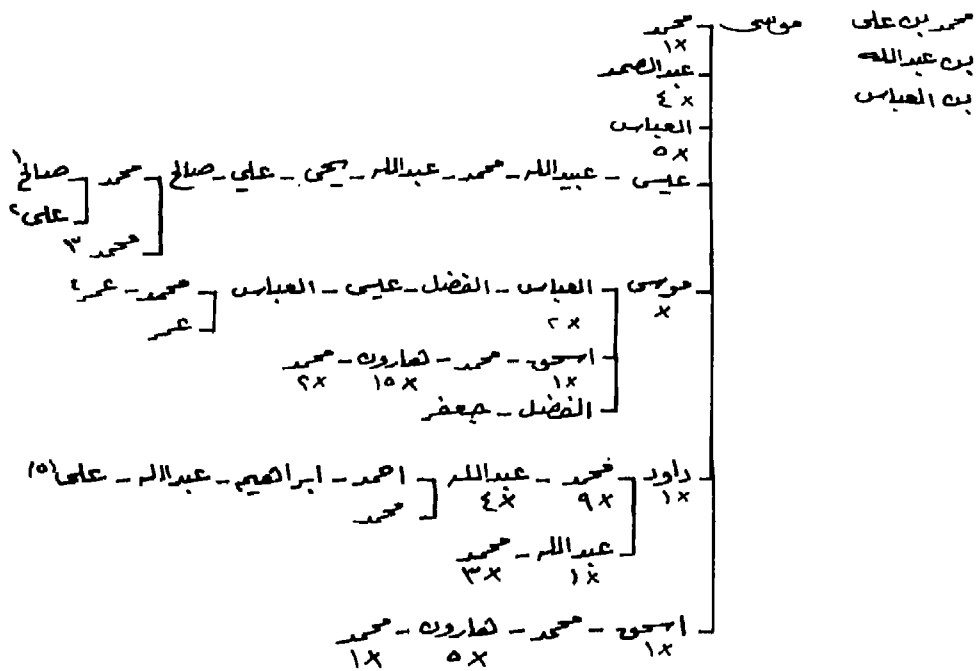 محمد بن علي موسى محمد
بن عبدالله ×١
بن العباس عبدالصمد
×٤
العباس
×٥
عيسى - عبيدالله - محمد - عبدالله - يحيى - علي - صالح محمد صالح ١
علي ٢
محمد ٣
موسى العباس - الفضل - عيسى - العباس محمد - عمر ٤
× ×٢ عمر
اسحق - محمد - هارون - محمد
×١ ×١٥ ×٢
الفضل - جعفر
داود محمد - عبدالله احمد - ابراهيم - عبدالله - علي (٥)
×١ ×٩ ×٤ محمد
عبدالله - محمد
×١ ×٣
اسحق - محمد - هارون - محمد
×١ ×٥ ×١